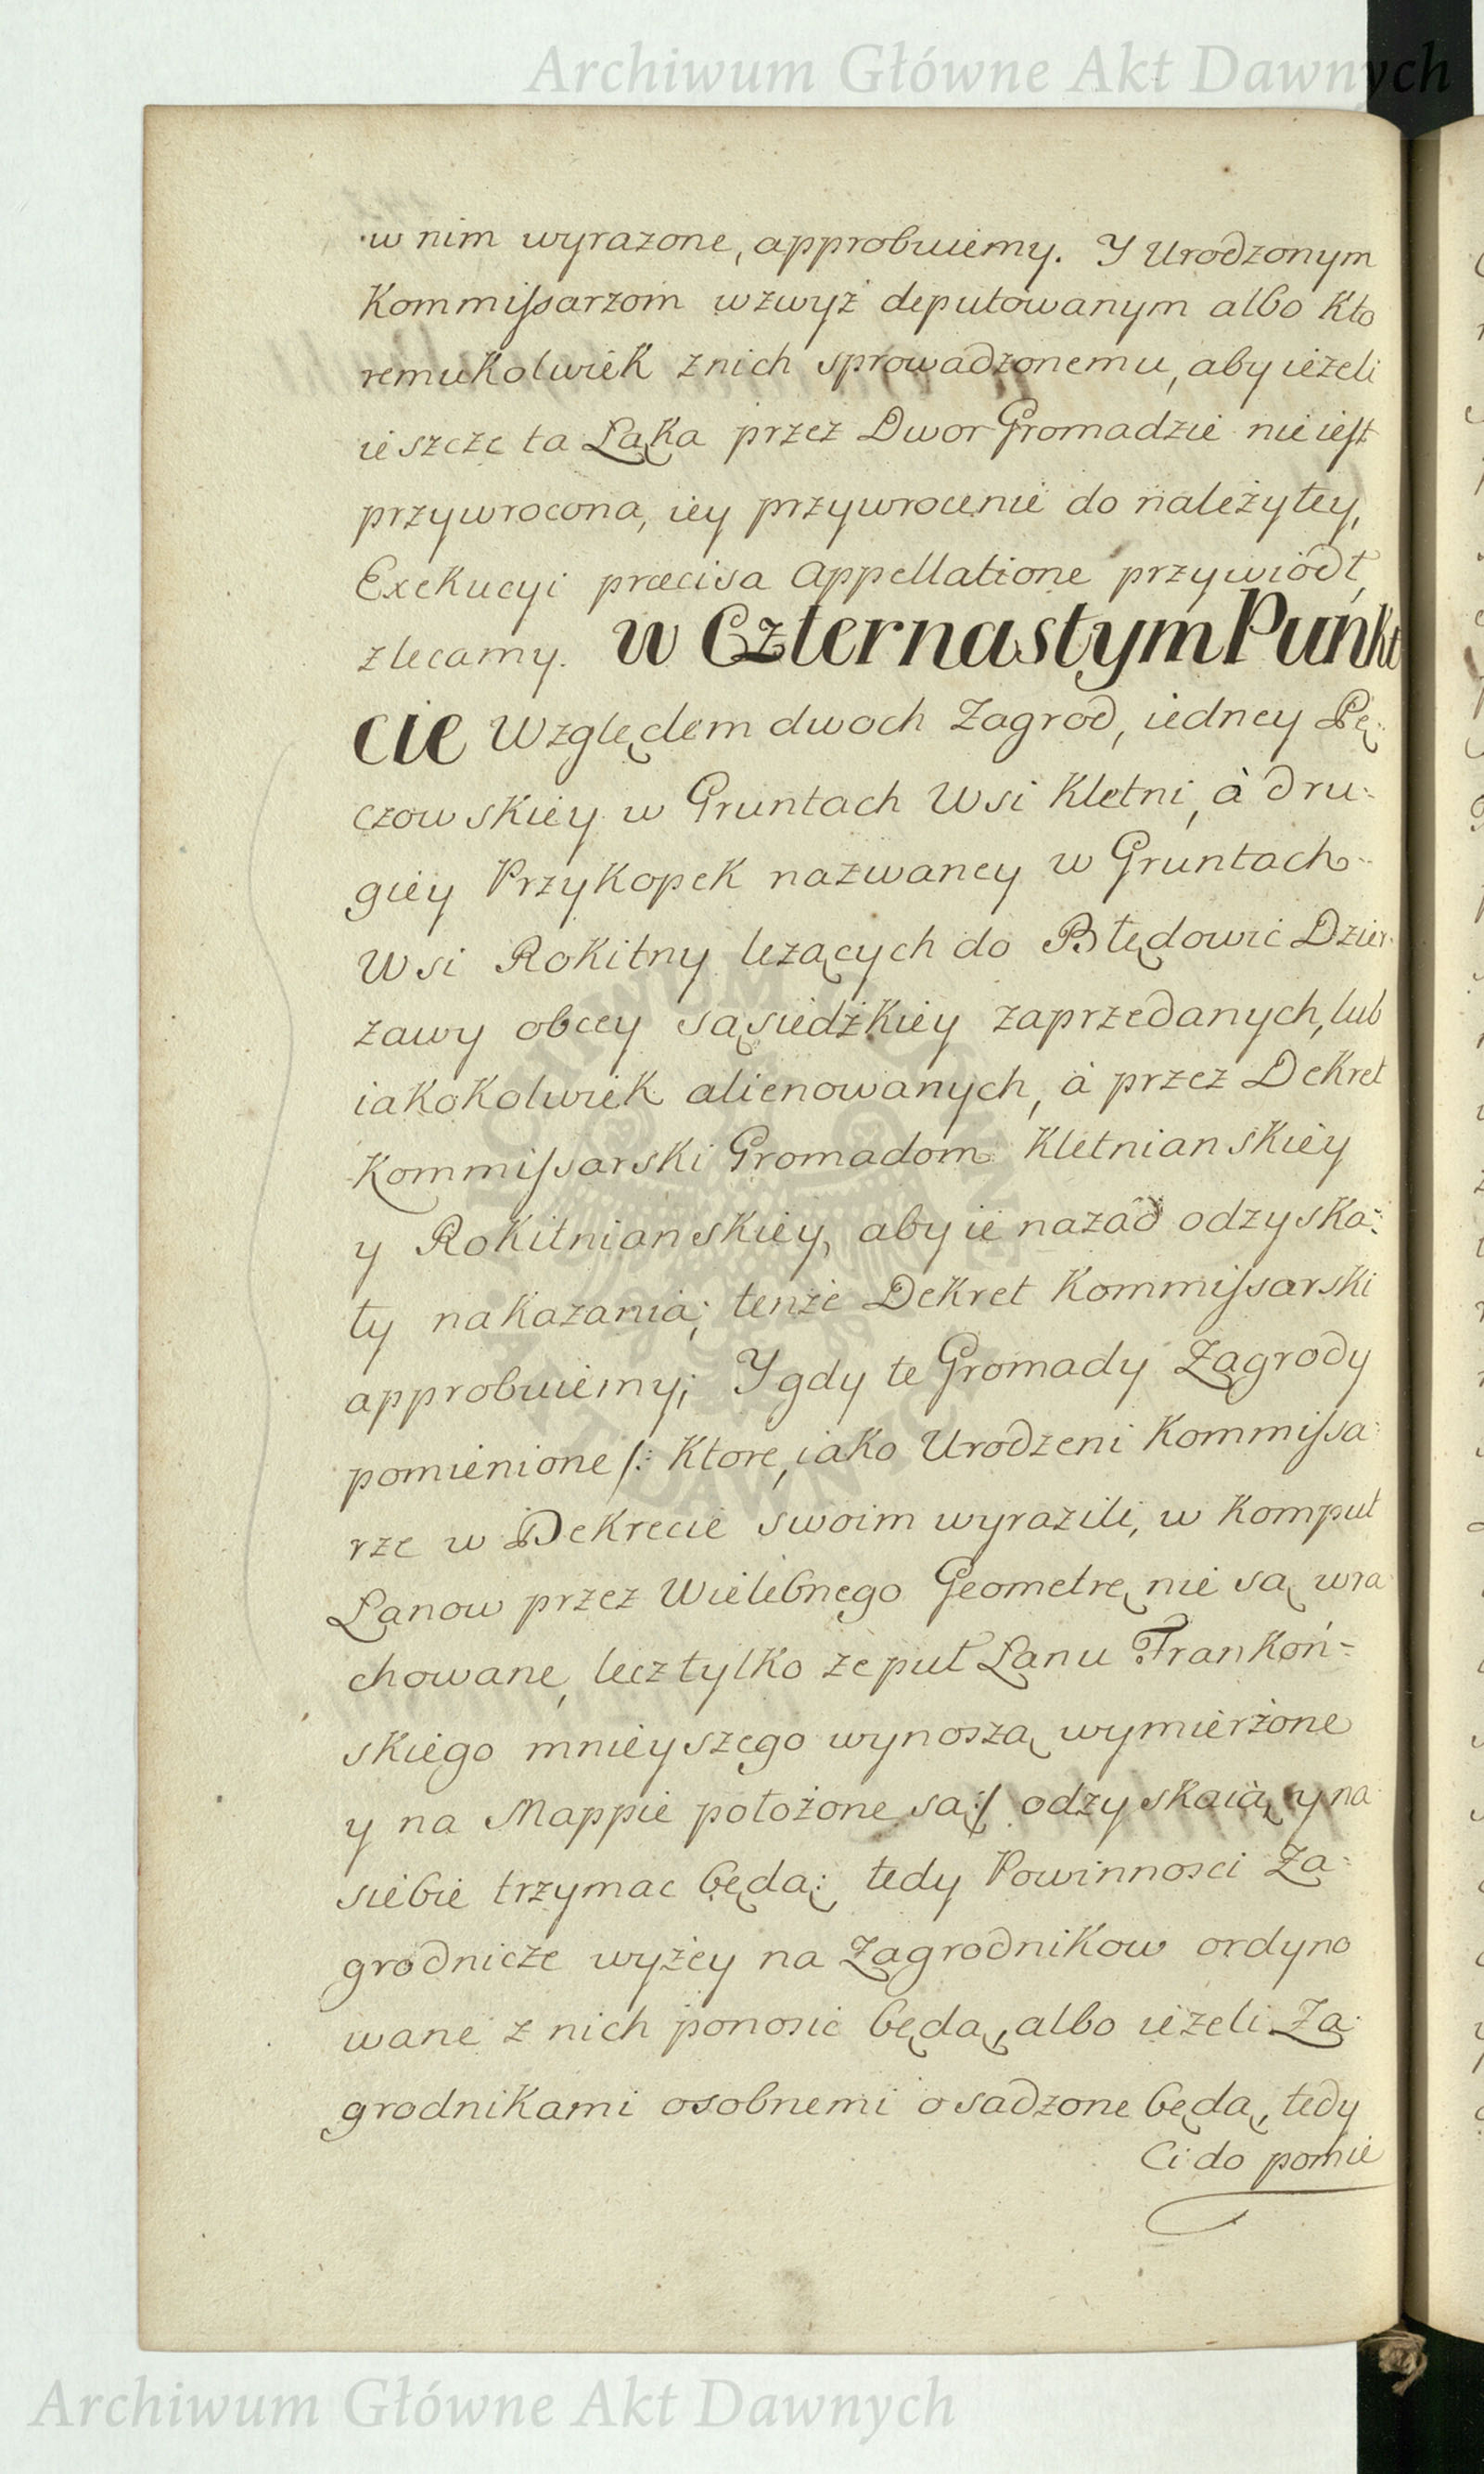 Archiwum Główne Akt Dawnych
w nim wyrazone, approbuiemy. Y Urodzonym
Kommissarzom wzwyż deputowanym albo Kto
remukolwiek znich sprowadzonemu, aby ieżeli
ieszcze ta Łąka przez Dwor Gromadzie nie iest
przywrocona, iey przywrocenie do należytey,
Exekucyi præcisa Appellatione przywiodł,
zlecamy. w Czternastym Punkt
cie Względem dwoch Zagrod, iedney Pę:
czowskiey w Gruntach Wsi Kletni, à dru:
giey Przykopek nazwaney w Gruntach
Wsi Rokitny lezących do Błędowic Dzier
zawy obcey sąsiedzkiey zaprzedanych, lub
iakokolwiek alienowanych, à przez Dekret
Kommissarski Gromadom Kletnianskiey
y Rokitnianskiey, aby ie nazad odzyska:
ły nakazania; tenże Dekret Kommissarski
approbuiemy; Y gdy te Gromady Zagrody
pomienione /: Ktore, iako Urodzeni Kommissa:
rze w Dekrecie swoim wyrazili, w Komput
Łanow przez Wielebnego Geometrę nie są wra
chowane, lecz tylko że puł Łanu Frankoń=
skiego mnieyszego wynoszą wymierżone
y na Mappie położone są :/ odzyskaią, y na
siebie trzymac będą; tedy Powinnosci Za=
grodnicze wyżey na Zagrodnikow ordyno
wane z nich ponosic będą, albo ieżeli Za
grodnikami osobnemi osadzone będą, tedy
Ci do pomie
ARCHIWUM GŁÓWNE AKT DAWNYCH
Archiwum Główne Akt Dawnych